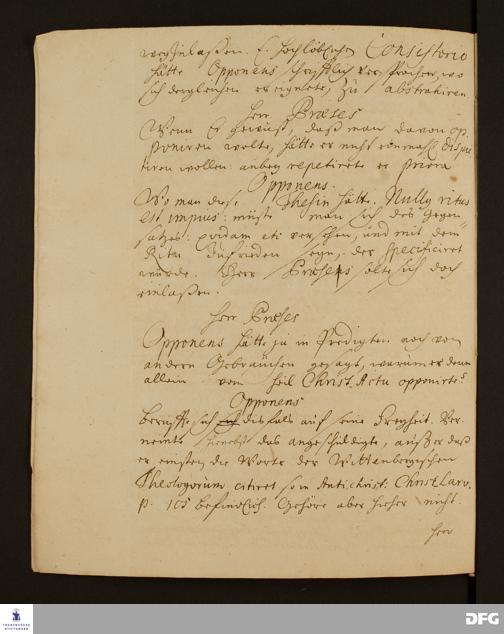 wegzulaßen. E. Hochlöblichen Consistorio
hätte Opponens schrifftlich versprochen, wo
sich dergleichen ereignete, zu abstrahiren
Herr Præses
Wenn Er gewust, daß man davon op-
poniren wolte, hätte er nicht einmahl dispu
tiren wollen: anbey repetirete er priora
Opponens.
Wo man diese Thesin hätte. Nullus ritus
est impius: müste man sich des Gegen-
satzes: quidam etc versehen, und mit dem
Ritu zufrieden seyn, der specificiret
würde. Herr Præses solte sich doch
einlaßen.
Herr Præses
Opponens hätte ja in Predigten noch von
andern Gebräuchen gesagt, warum er denn
allein vom Heil. Christ Actu opponirte?
Opponens
beruffte sich disfals auf seine Freyheit. Ver-
neinte hiernebst das angeschuldigte, außer daß
er einsten die Worte der Wittenbergischen
Theologorum citiret so in Antichrist: Christ Larv.
p. 105 befindlich. Gehöre aber hieher nicht.
Herr
FRANCKESCHE STIFTUNGEN
DFG